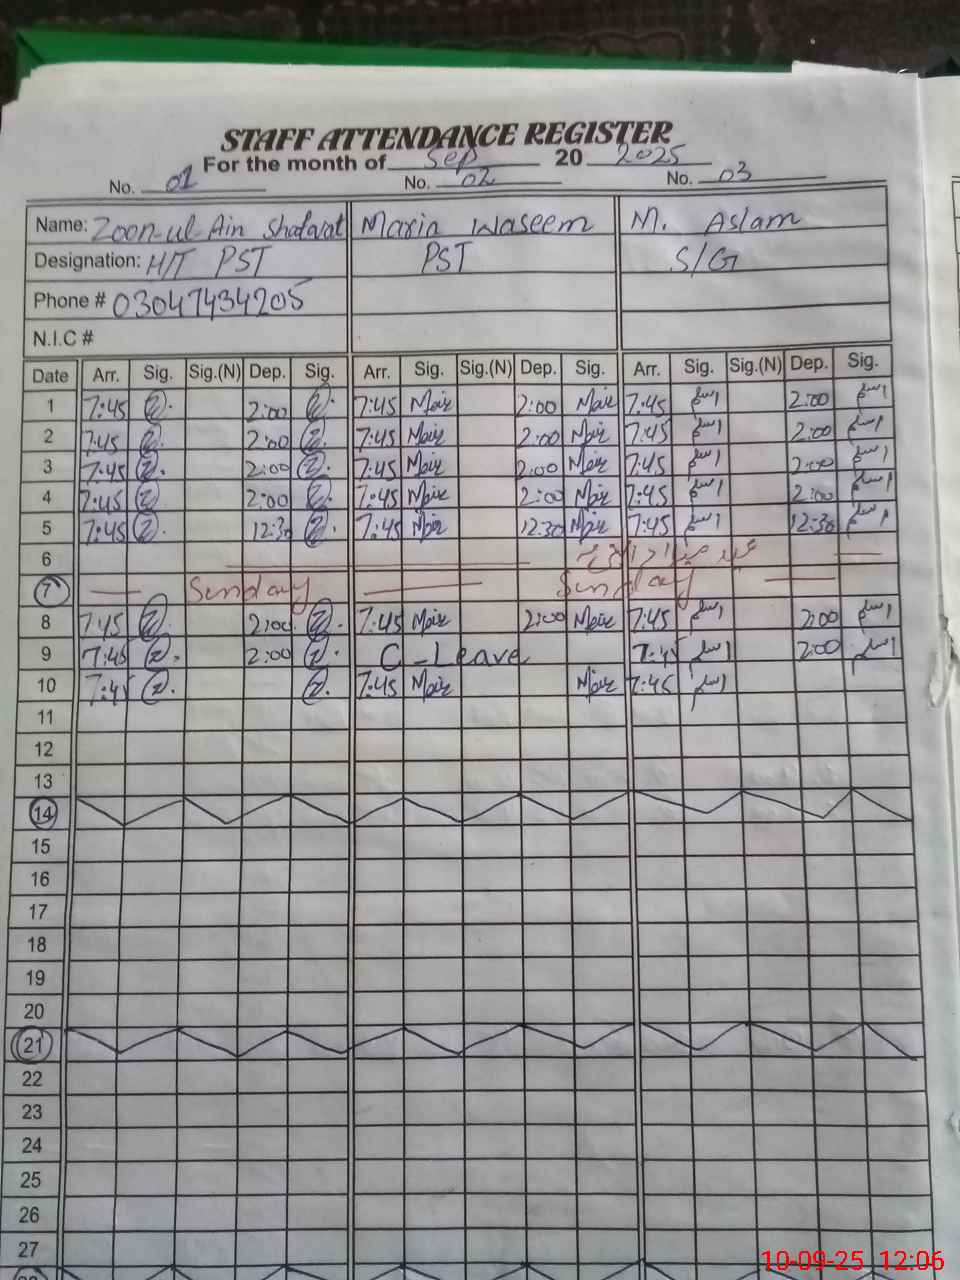 STAFF ATTENDANCE REGISTER
For the month of Sep 20 2025
No. 01 No. 02 No. 03
Name: Zoon-ul-Ain Shafaat Maria Waseem M. Aslam
Designation: H/T PST PST S/G
Phone # 03047434205
N.I.C #
Date Arr. Sig. Sig.(N) Dep. Sig. Arr. Sig. Sig.(N) Dep. Sig. Arr. Sig. Sig.(N) Dep. Sig.
1 7:45 2:00 7:45 Mair 2:00 Mair 7:45 اسلم 2:00 اسلم
2 7:45 2:00 7:45 Mair 2:00 Mair 7:45 اسلم 2:00 اسلم
3 7:45 2:00 7:45 Mair 2:00 Mair 7:45 اسلم 2:00 اسلم
4 7:45 2:00 7:45 Mair 2:00 Mair 7:45 اسلم 2:00 اسلم
5 7:45 12:30 7:45 Mair 12:30 Mair 7:45 اسلم 12:30 اسلم
6 عید میلاد
7 Sunday Sunday
8 7:45 2:00 7:45 Mair 2:00 Mair 7:45 اسلم 2:00 اسلم
9 7:45 2:00 C-Leave 7:45 اسلم 2:00 اسلم
10 7:45 7:45 Mair Mair 7:45 اسلم
11
12
13
14
15
16
17
18
19
20
21
22
23
24
25
26
27
10-09-25 12:06